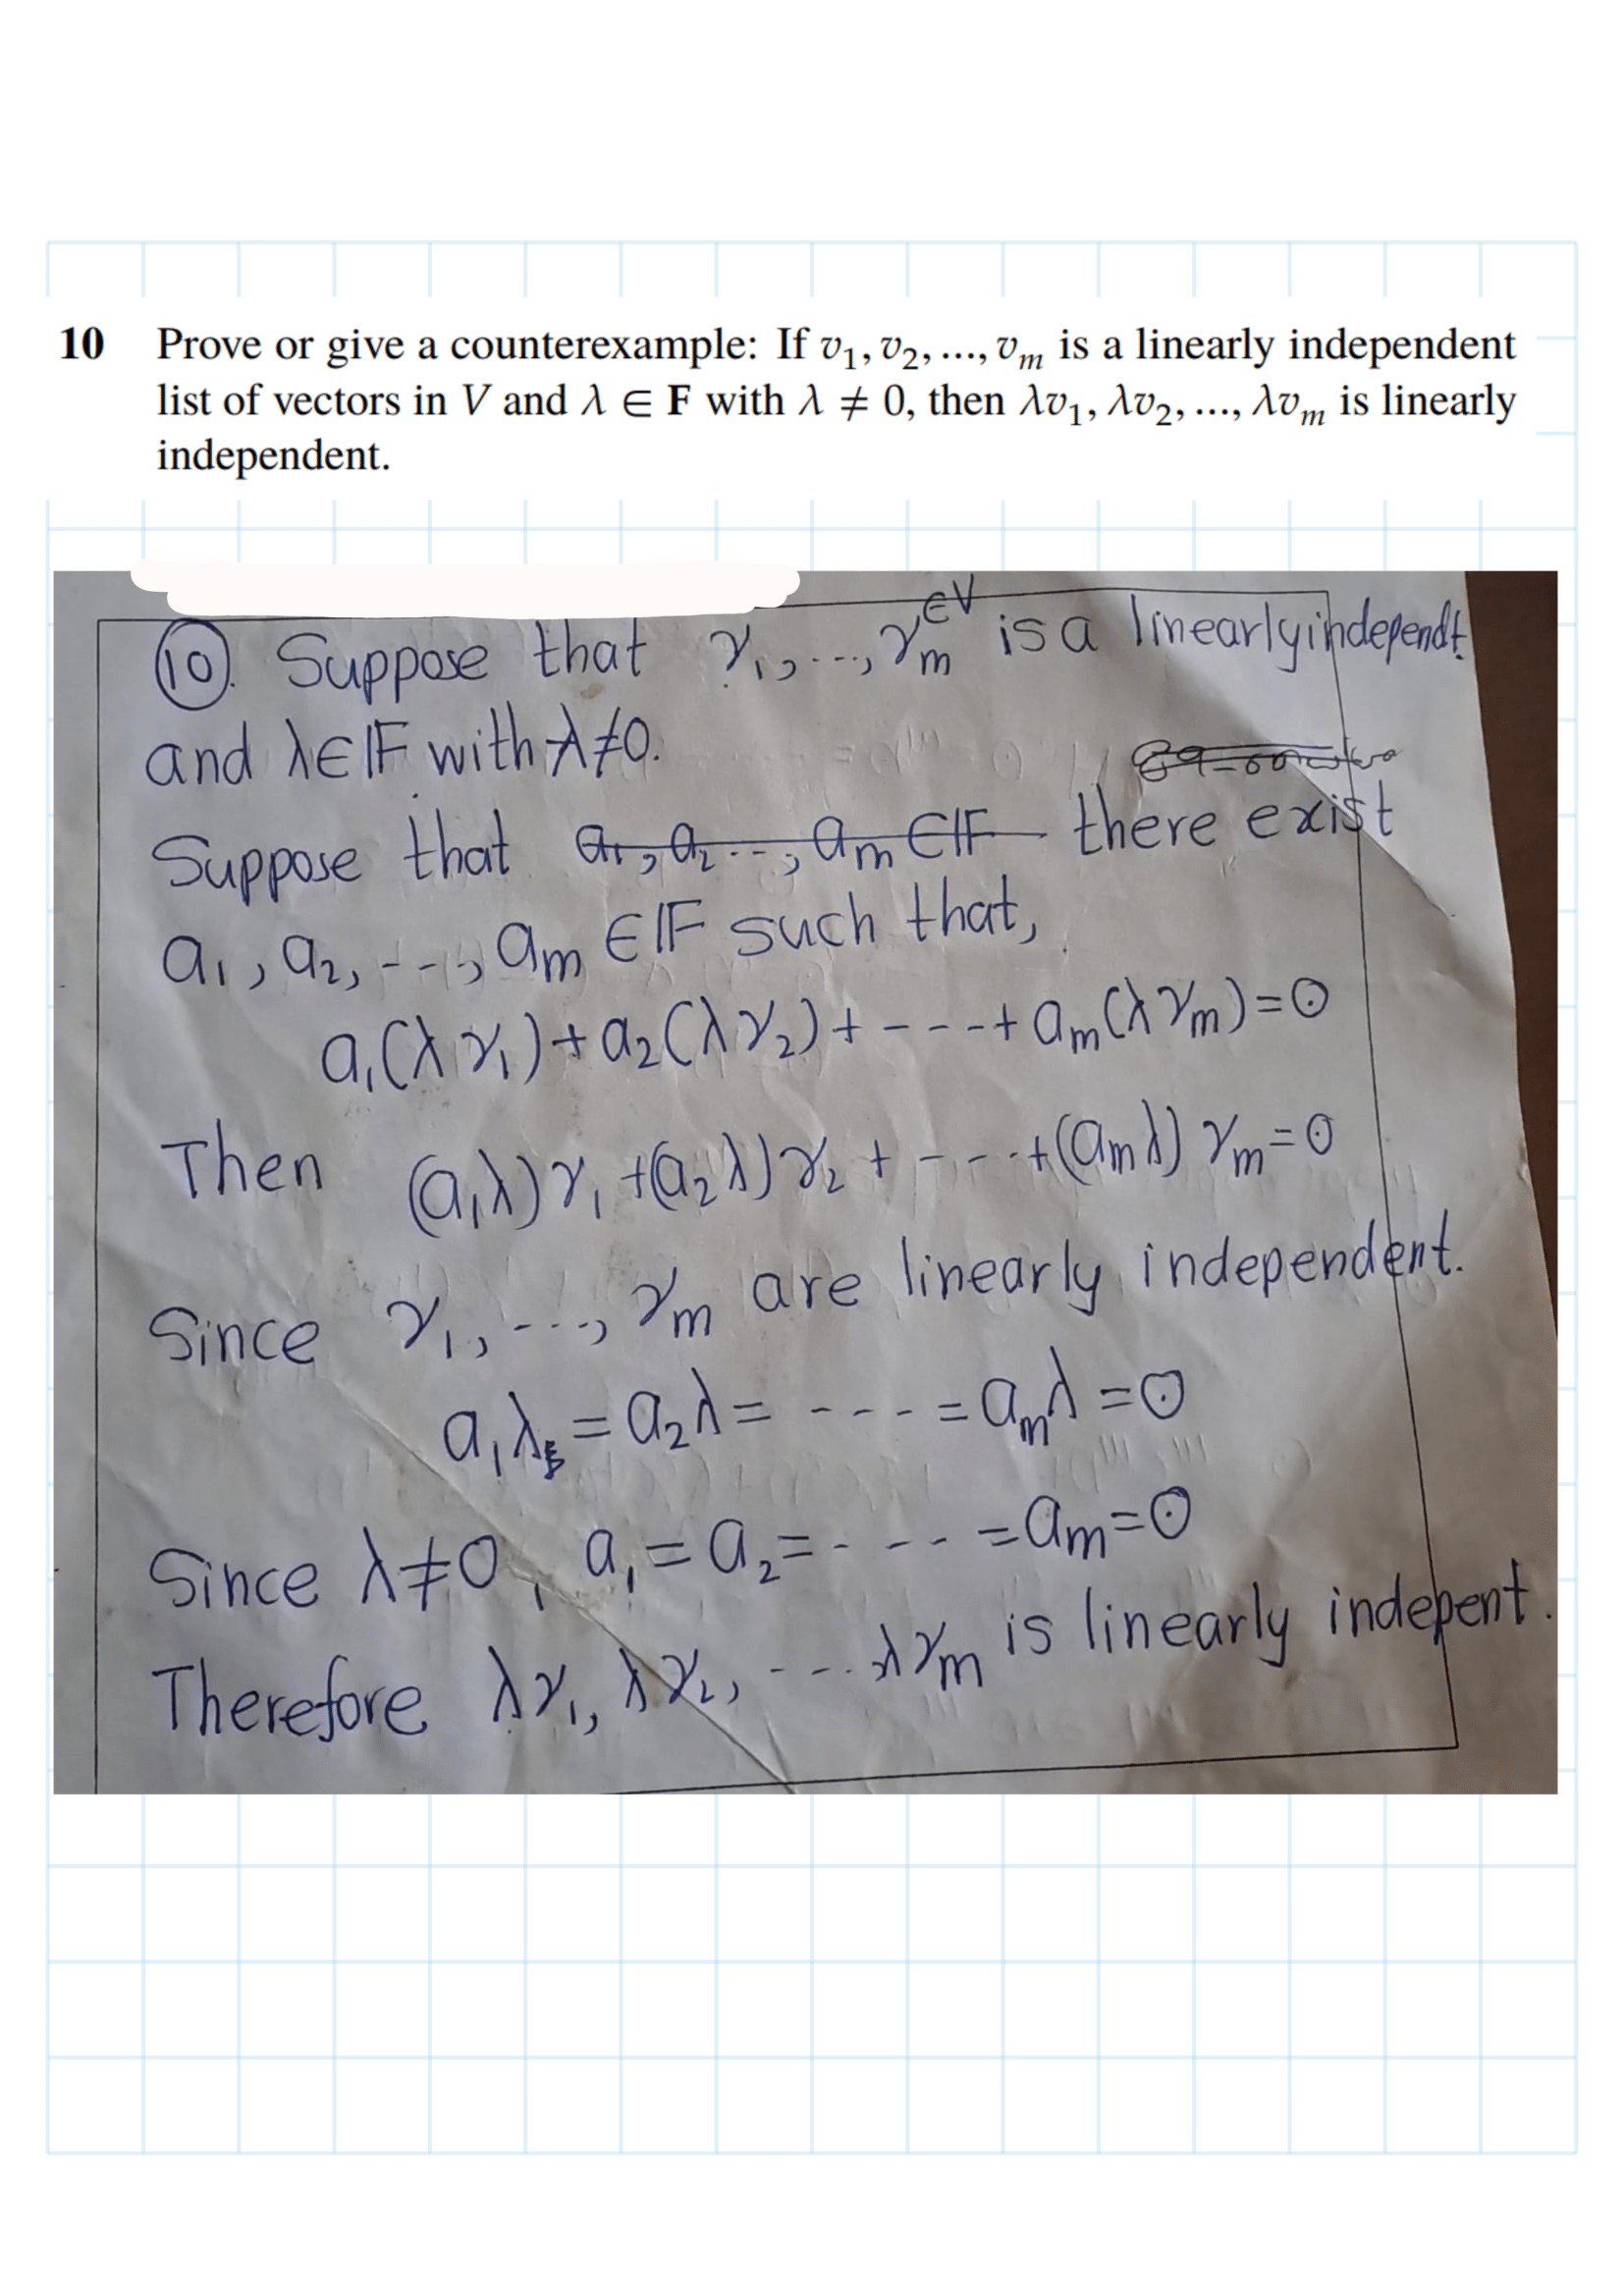 10 Prove or give a counterexample: If v₁, v₂, ..., vₘ is a linearly independent
list of vectors in V and λ ∈ F with λ ≠ 0, then λv₁, λv₂, ..., λvₘ is linearly
independent.
⑩. Suppose that v₁, ..., vₘ ∈V is a linearly independt.
and λ∈𝔽 with λ≠0.
Suppose that a₁, a₂ ..., aₘ ∈𝔽 there exist
a₁, a₂, ---, aₘ ∈𝔽 such that,
a₁(λv₁)+a₂(λv₂)+----+aₘ(λvₘ)=0
Then (a₁λ)v₁+(a₂λ)v₂+----+(aₘλ)vₘ=0
Since v₁, ---, vₘ are linearly independent.
a₁λ=a₂λ=----=aₘλ=0
Since λ≠0, a₁=a₂=----=aₘ=0
Therefore λv₁, λv₂, ---. λvₘ is linearly indepent.